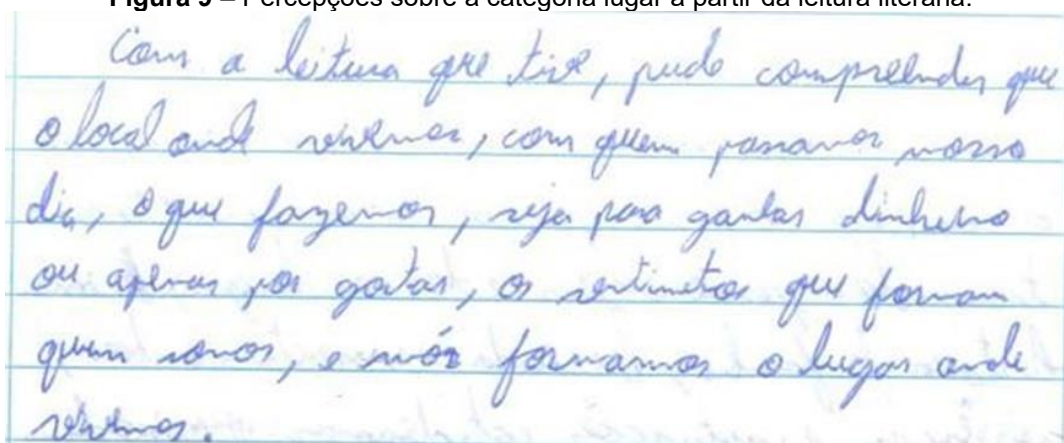 Figura 9 – Percepções sobre a categoria lugar a partir da leitura literária.
Com a leitura que tive, pude compreender que
o local onde vivemos, com quem passamos nosso
dia, o que fazemos, seja para ganhar dinheiro
ou apenas por gostar, os sentimetos que formam
quem somos, e nós formamos o lugar onde
vivemos.